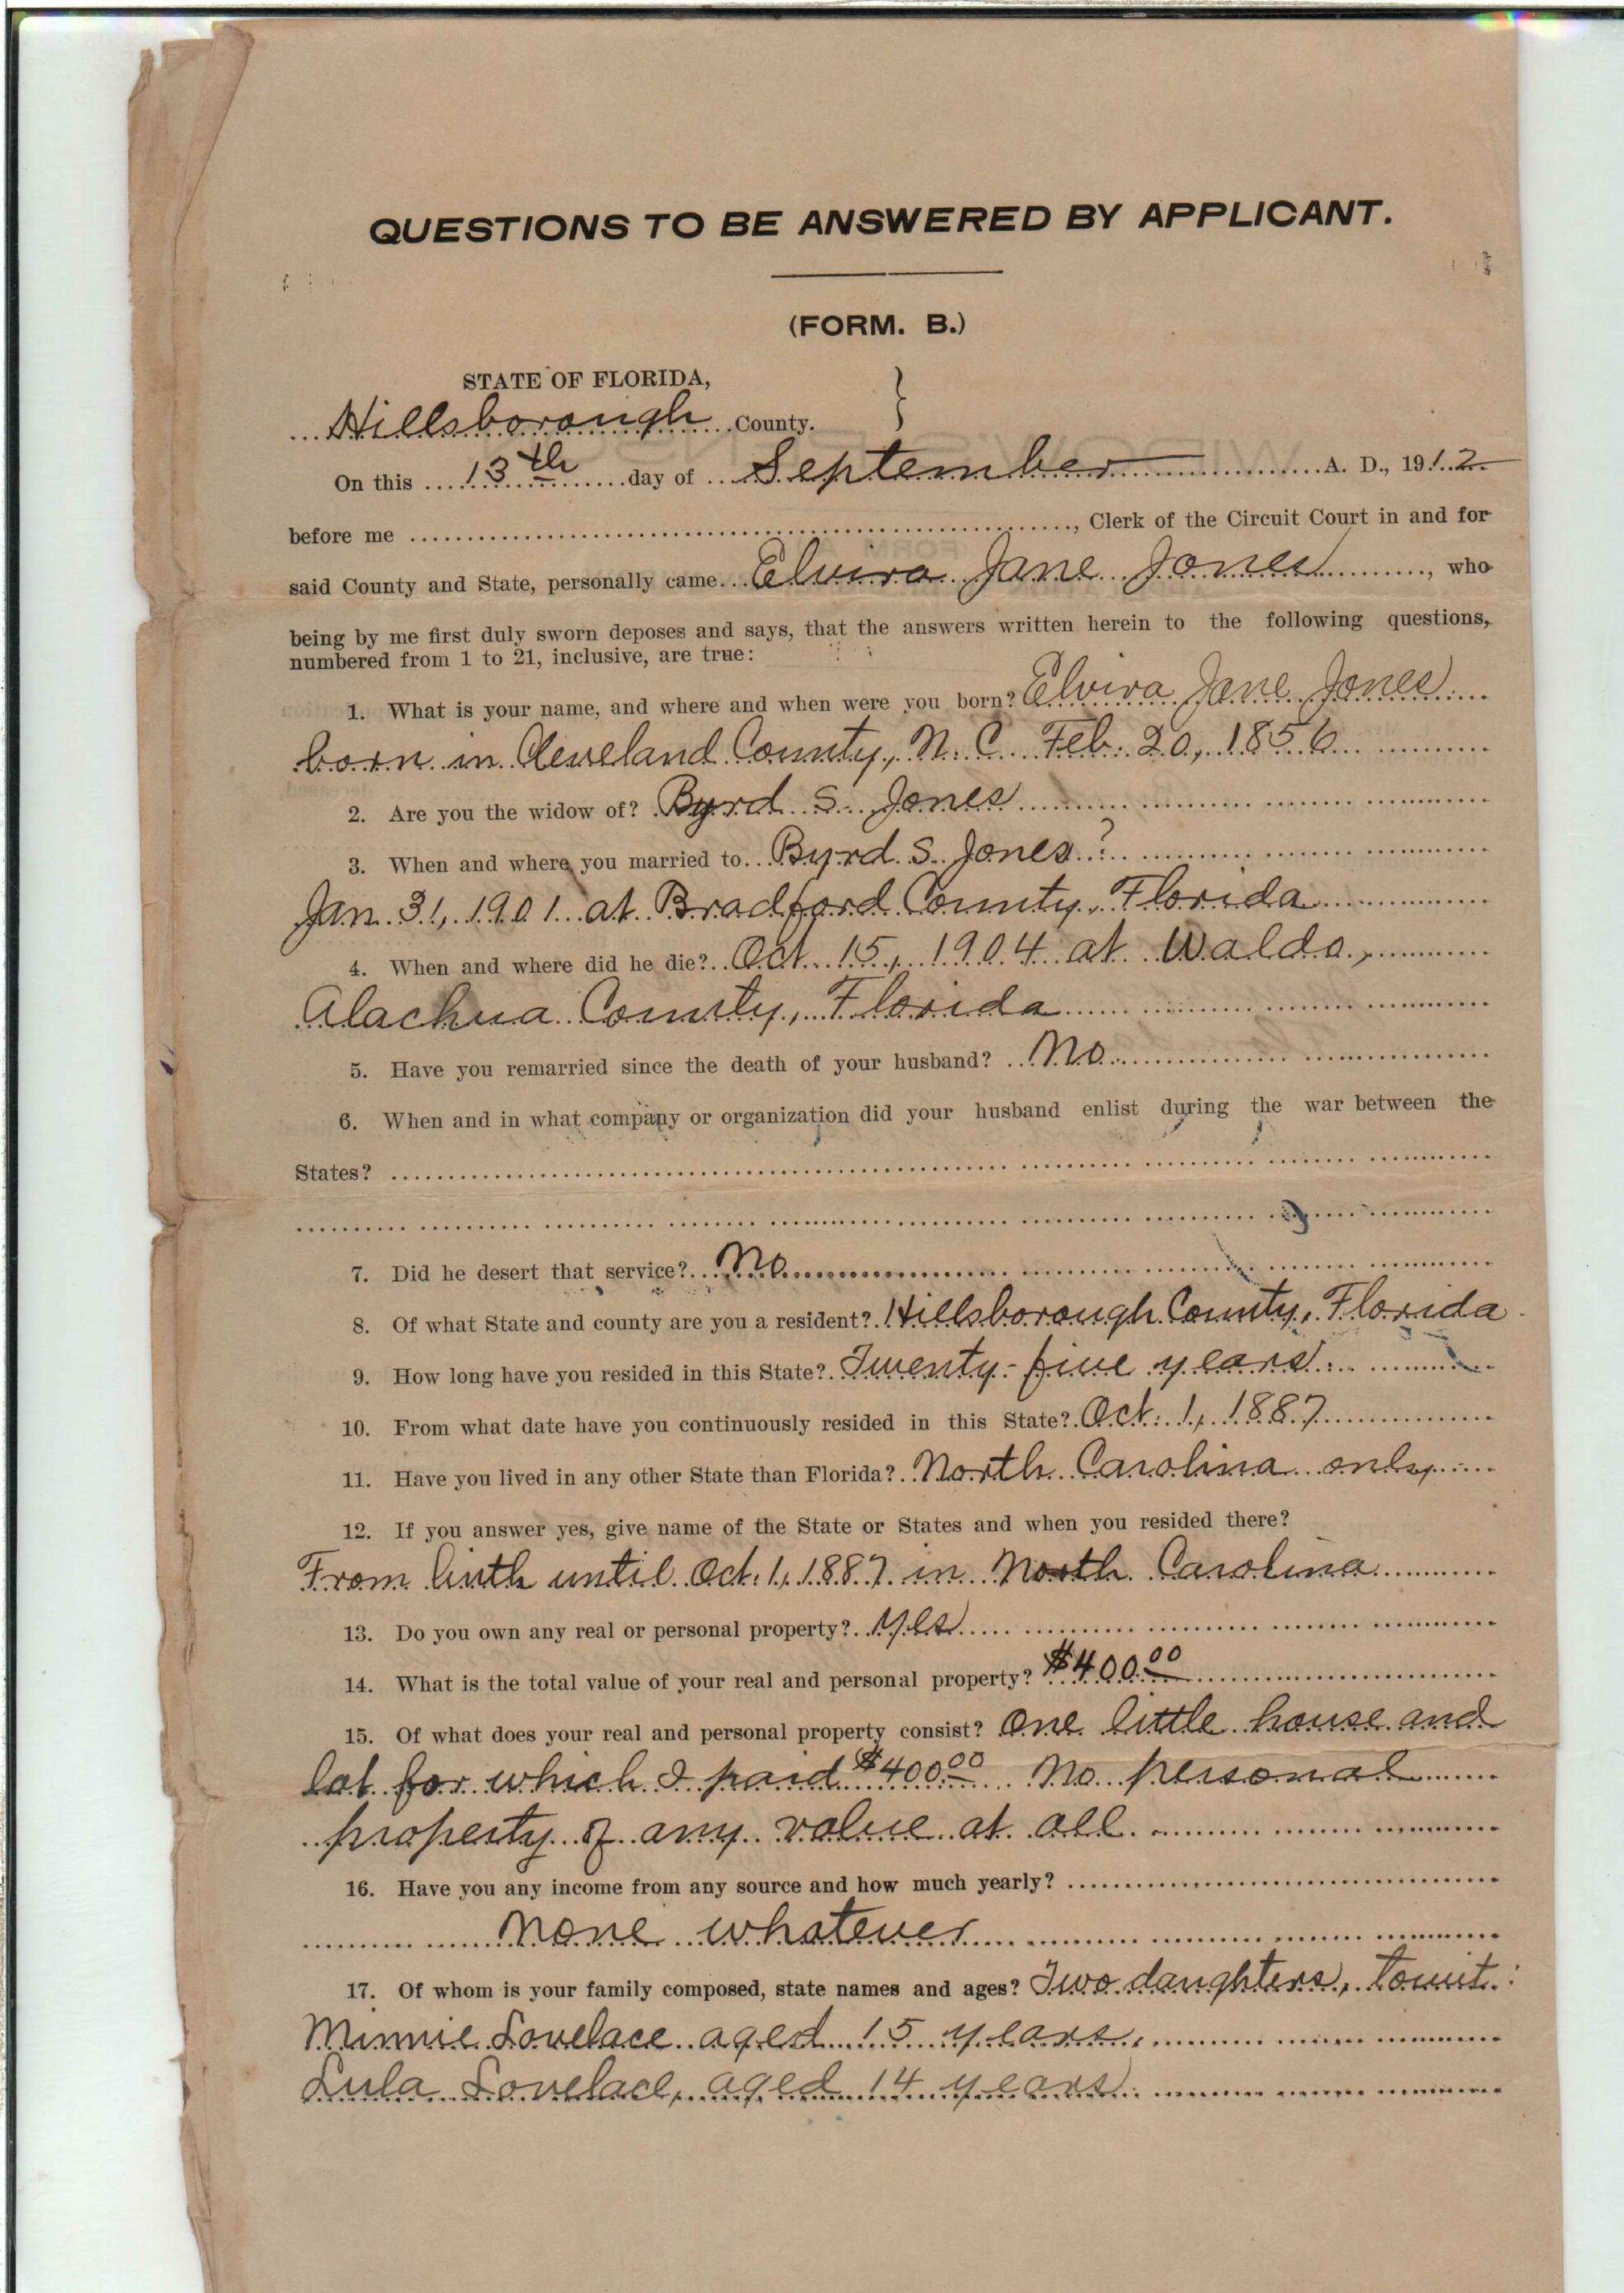 QUESTIONS TO BE ANSWERED BY APPLICANT.
(FORM. B.)
STATE OF FLORIDA,
Hillsborough County.
On this 13th day of September A. D., 1912
before me , Clerk of the Circuit Court in and for
said County and State, personally came Elvira Jane Jones, who
being by me first duly sworn deposes and says, that the answers written herein to the following questions,
numbered from 1 to 21, inclusive, are true:
1. What is your name, and where and when were you born? Elvira Jane Jones
born in Cleveland County, N. C. Feb. 20, 1856
2. Are you the widow of? Byrd S. Jones
3. When and where you married to Byrd S. Jones?
Jan. 31, 1901 at Bradford County, Florida
4. When and where did he die? Oct. 15, 1904 at Waldo,
Alachua County, Florida
5. Have you remarried since the death of your husband? No
6. When and in what company or organization did your husband enlist during the war between the
States?
7. Did he desert that service? No
8. Of what State and county are you a resident? Hillsborough County, Florida
9. How long have you resided in this State? Twenty-five years
10. From what date have you continuously resided in this State? Oct. 1, 1887
11. Have you lived in any other State than Florida? North Carolina only
12. If you answer yes, give name of the State or States and when you resided there?
From birth until Oct. 1, 1887 in North Carolina
13. Do you own any real or personal property? Yes
14. What is the total value of your real and personal property? $400.00
15. Of what does your real and personal property consist? One little house and
lot for which I paid $400.00 No personal
property of any value at all
16. Have you any income from any source and how much yearly?
None whatever
17. Of whom is your family composed, state names and ages? Two daughters, towit:
Minnie Lovelace aged 15 years,
Lula Lovelace, aged 14 years